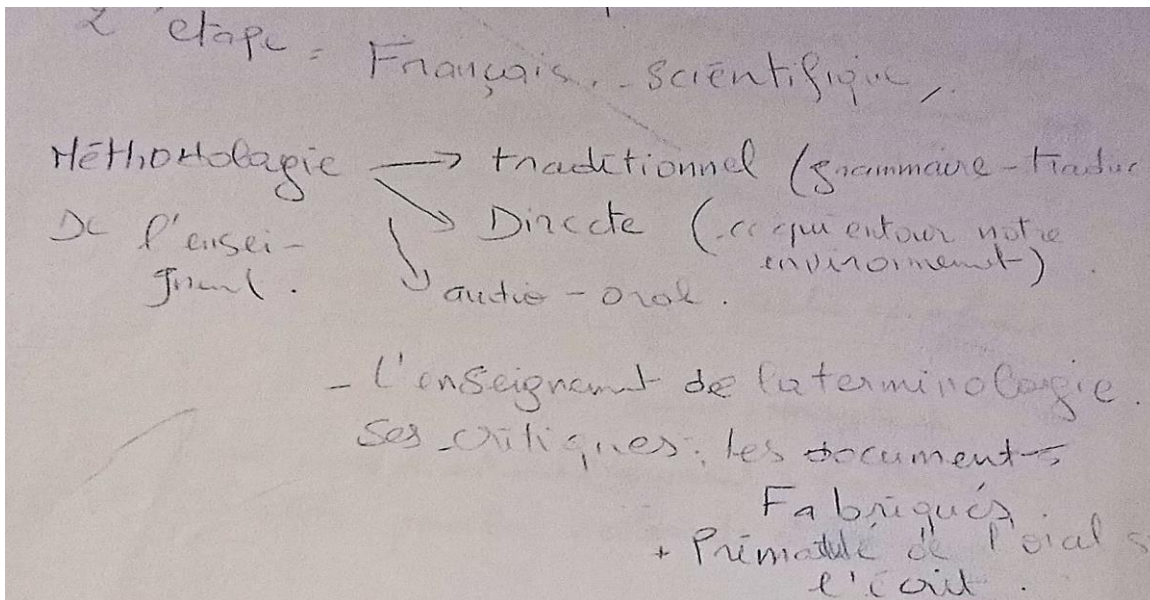 2 etape = Français. - scientifique,
Méthodologie → traditionnel (grammaire - traduc
De l'ensei- → Directe (ce qui entour notre
environnement).
gnemt. → audio - oral.
- l'enseignemt de la terminologie.
Ses critiques: les documents
Fabriqués.
+ Primauté de l'oral s
l'écrit.